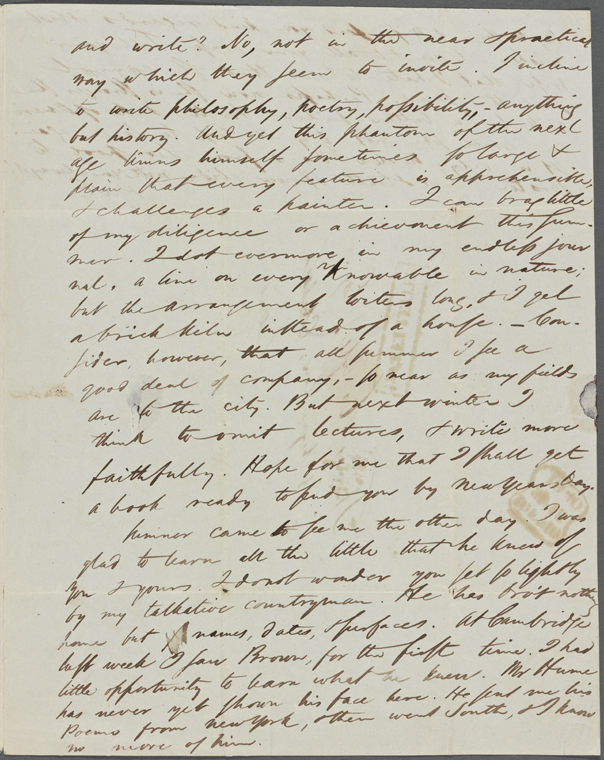 and write? No, not in the near & practical
way which they seem to invite. I incline
to write philosophy, poetry, possibility, – anything
but history. And yet this phantom of the next
age limns himself sometimes so large &
plain that every feature is apprehensible,
& challenges a painter. I can brag little
of my diligence or achievement this sum-
mer. I dot evermore in my endless jour
nal, a line on every knowable in nature;
but the arrangement loiters long, & I get
a brick kiln instead of a house. – Con-
sider, however, that all summer I see a
good deal of company, – so near as my fields
are to the city. But next winter I
think to omit lectures, & write more
faithfully. Hope for me that I shall get
a book ready to send you by New Years Day.
Sumner came to see me the other day. I was
glad to learn all the little that he knew of
you & yours I do not wonder you set so lightly
by my talkative countryman. He has bro't nothg
home but names, dates, & surfaces. At Cambridge
last week I saw Brown, for the first time. I had
little opportunity to learn what he knew. Mr Hume
has never yet shown his face here. He sent me his
Poems from New York, & then went South, & I know
no more of him.